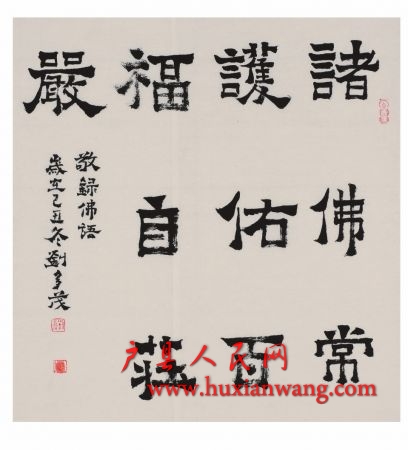 諸佛常
護佑百
福自莊
嚴
敬録佛語
歲在己丑冬劉
户县人民网
www.huxianwang.com